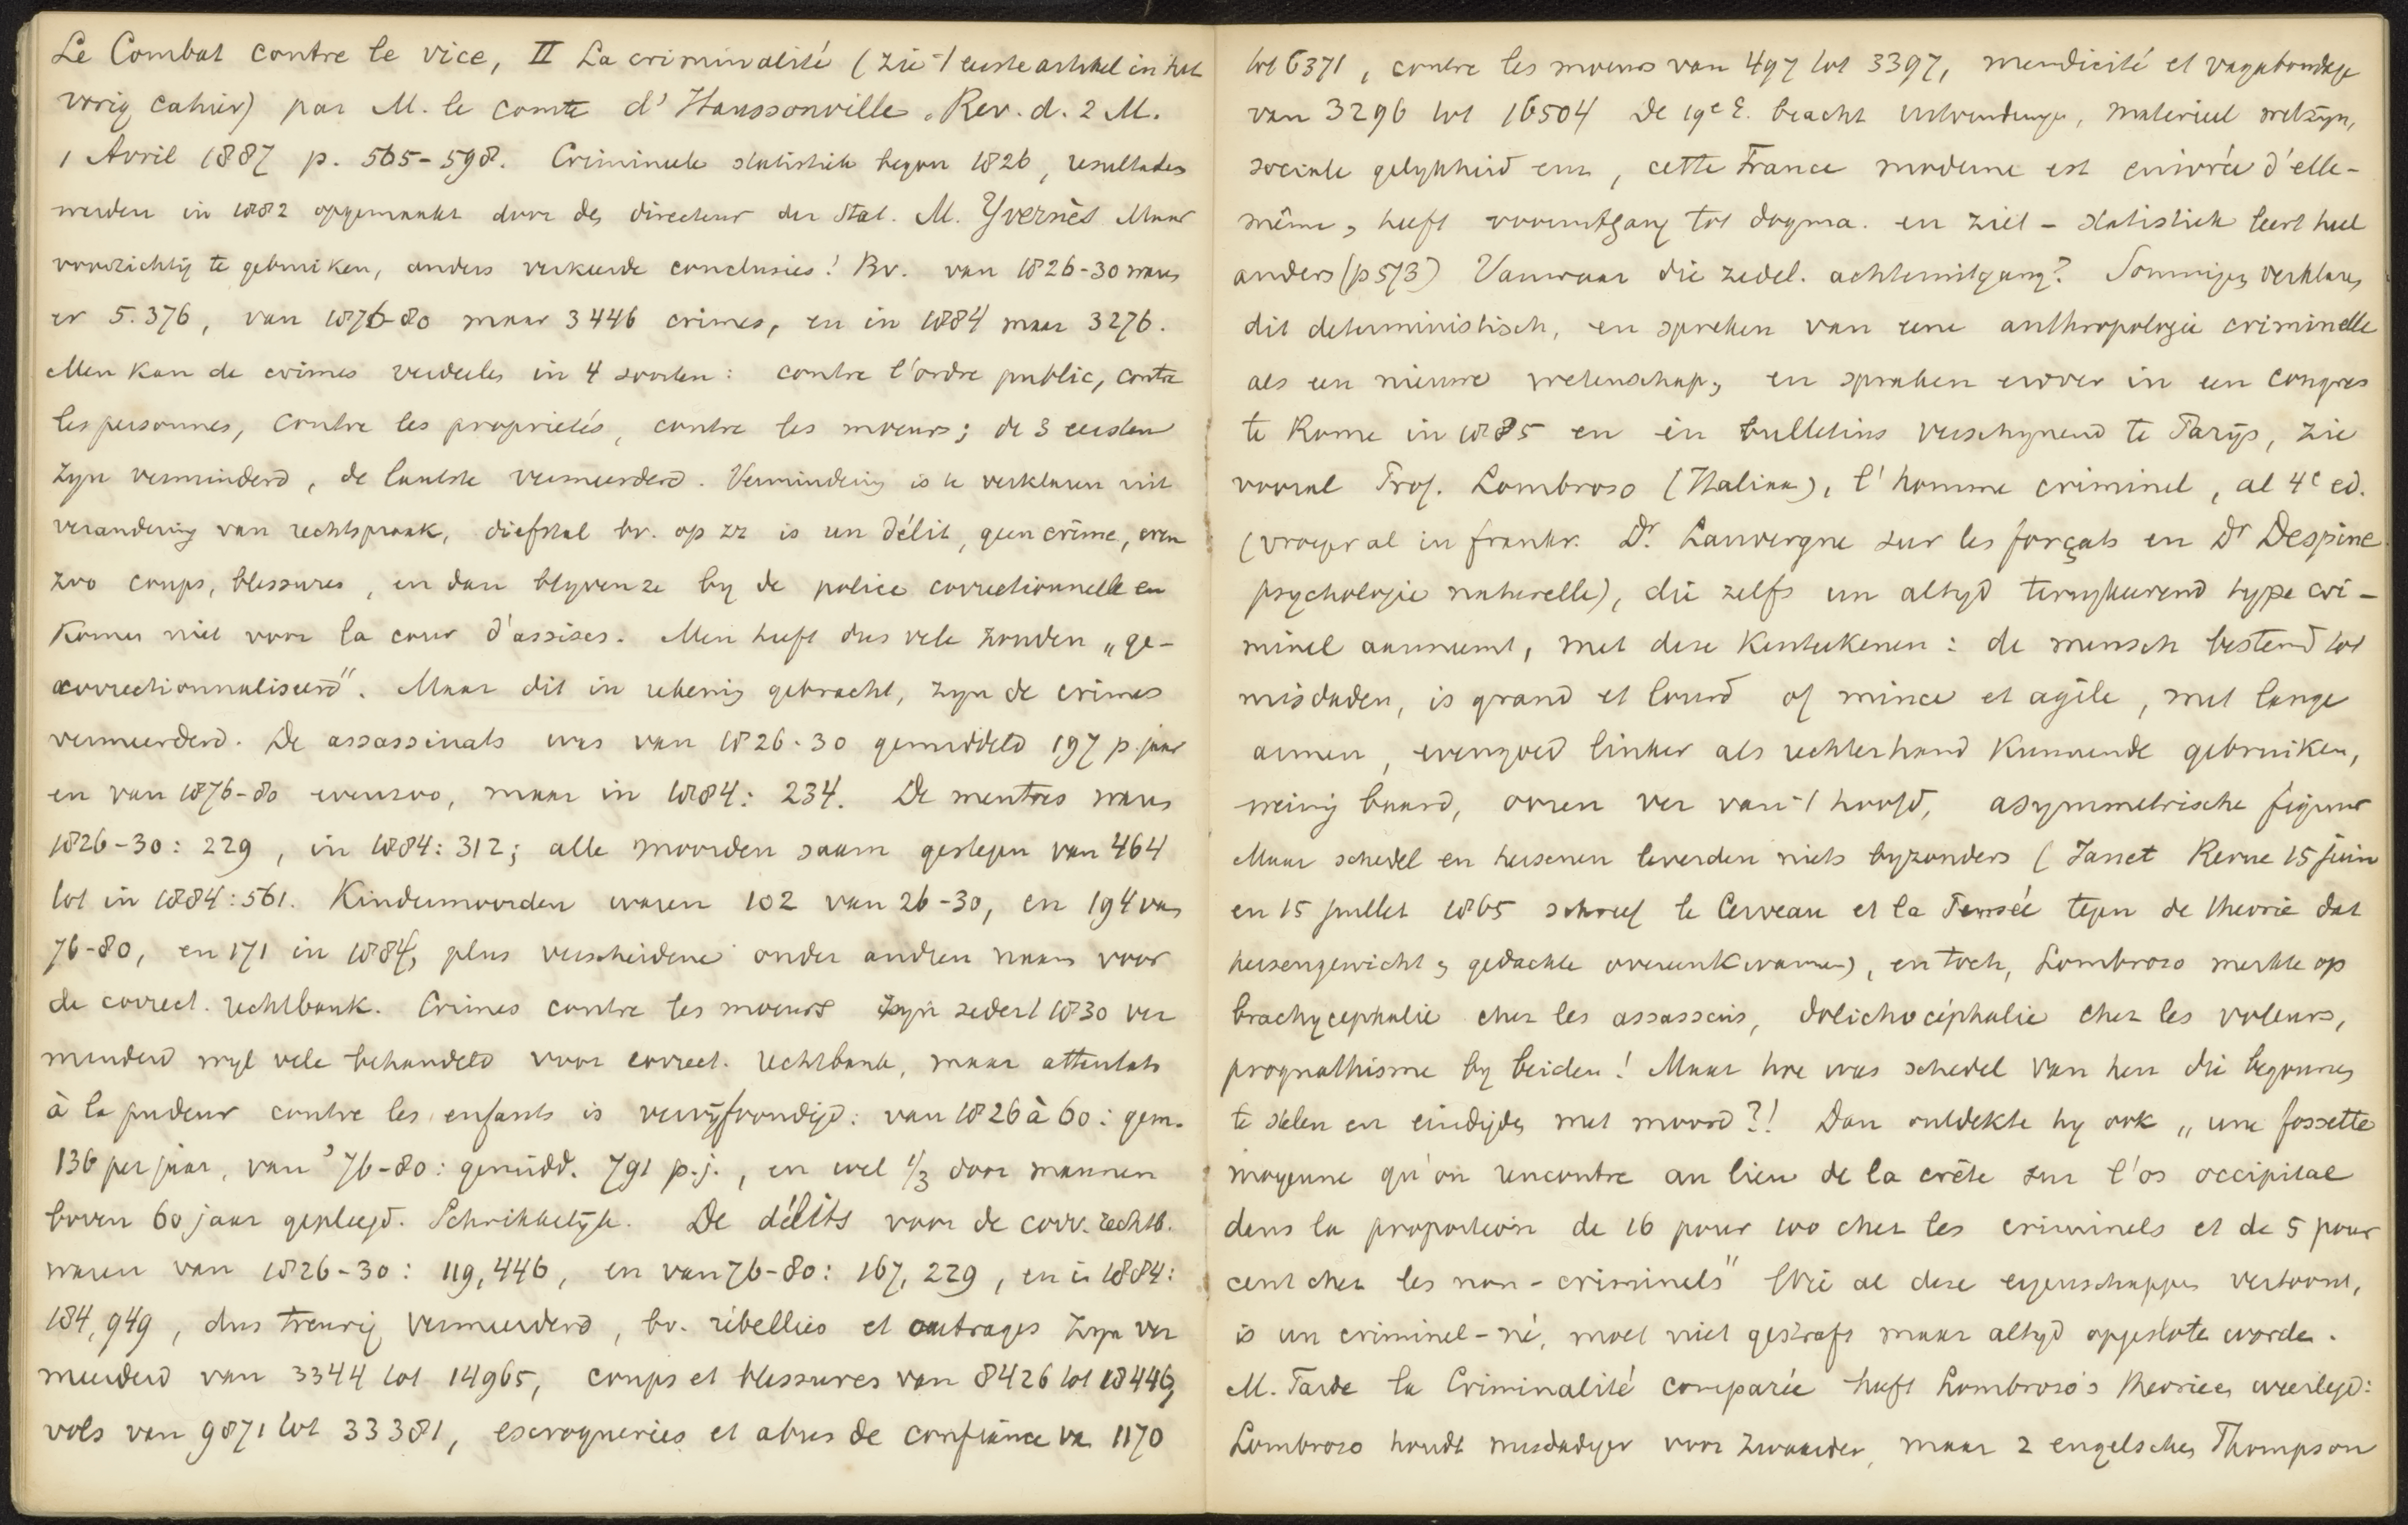 Le Combat contre le vice, II La criminalité (zie 't eerste artikel in het
vorig cahier) par M. le comte d'Haussonville. Rev. d. 2 M.
1 Avril 1887 p. 565-598. Crimineele statistiek begon 1826, resultaten
werden in 1882 opgemaakt door den directeur der Stat. M. Yvernès Maar
voorzichtig te gebruiken, anders verkeerde conclusies! Bv. van 1826-30 waren
er 5.376, van 1876-80 maar 3446 crimes, en in 1884 maar 3276.
Men kan de crimes verdeelen in 4 soorten: contre l'ordre public, contre
les personnes, contre les propriétés, contre les moeurs; de 3 eersten
zyn verminderd, de laatste vermeerderd. Vermindering is te verklaren uit
verandering van rechtspraak, diefstal bv. op zz is een délit, geen crime, even
zoo coups, blessures, en dan blyven ze by de police correctionnelle en
komen niet voor la cour d'assises. Men heeft dus vele zonden „ge-
correctionnaliseerd". Maar dit in rekening gebracht, zyn de crimes
vermeerderd. De assassinats was van 1826-30 gemiddeld 197 p. jaar
en van 1876-80 evenzoo, maar in 1884: 234. De meurtres waren
1826-30: 229, in 1884: 312; alle moorden saam gestegen van 464
tot in 1884: 561. Kindermoorden waren 102 van 26-30, en 194 van
76-80, en 171 in 1884, plus verscheidene onder andren naam voor
de correct. rechtbank. Crimes contre les moeurs zyn sedert 1830 ver
minderd wyl vele behandeld voor correct. rechtbank, maar attentats
à la pudeur contre les enfants is vervijfvoudigd: van 1826 à 60: gem.
136 per jaar, van '76-80: gemidd. 791 p.j., en wel 1/3 door mannen
boven 60 jaar gepleegd. Schrikkelijk. De délits voor de corr. rechtb.
waren van 1826-30: 119,446, en van 76-80: 167,229, en in 1884:
184,949, dus treurig vermeerderd, bv. rébellies et outrages zyn ver
meerderd van 3344 tot 14965, coups et blessures van 8426 tot 18446,
vols van 9871 tot 33381, escroqueries et abus de confiance van 1170
tot 6371, contre les moeurs van 497 tot 3397, mendicité et vagabondage
van 3296 tot 16504 De 19e E. bracht uitvindingen, materieel welzyn,
sociale gelykheid enz, cette France moderne est enivrée d'elle-
même, heeft vooruitgang tot dogma. en ziet - statistiek leert heel
anders (p 573) Vanwaar die zedel. achteruitgang? Sommigen verklaren
dit deterministisch, en spreken van eene anthropologie criminelle
als een nieuwe wetenschap, en spraken erover in een congres
te Rome in 1885 en in bulletins verschynend te Parijs, zie
vooral Prof. Lombroso (Italiaan), l'homme criminel, al 4e ed.
(vroeger al in frankr. Dr. Lauvergne sur les forçats en Dr Despine
psychologie naturelle), die zelfs een altyd terugkeerend type cri-
minel aanneemt, met deze kenteekenen: de mensch bestemd tot
misdaden, is grand et lourd of mince et agile, met lange
armen, evengoed linker als rechterhand kunnende gebruiken,
weinig baard, ooren ver van 't hoofd, asymmetrische figuur
Maar schedel en hersenen leverden niets byzonders (Janet Revue 15 juin
en 15 juillet 1865 schreef le Cerveau et la Pensée tegen de theorie dat
hersengewicht & gedachte overeenkwamen), en toch, Lombroso merkte op
brachycephalie chez les assassins, dolichocéphalie chez les voleurs,
prognathisme by beiden! Maar hoe was schedel van hen die begonnen
te stelen en eindigden met moord?! Dan ontdekte hy ook „une fossette
moyenne qu'on rencontre au lieu de la crête sur l'os occipital
dans la proportion de 16 pour 100 chez les criminels et de 5 pour
cent chez les non-criminels" Wie al deze eigenschappen vertoont,
is un criminel-né, moet niet gestraft maar altyd opgesloten worden.
M. Tarde la Criminalité comparée heeft Lombroso's theorieen weerlegd:
Lombroso houdt misdadiger voor zwaarder, maar 2 engelschen Thompson